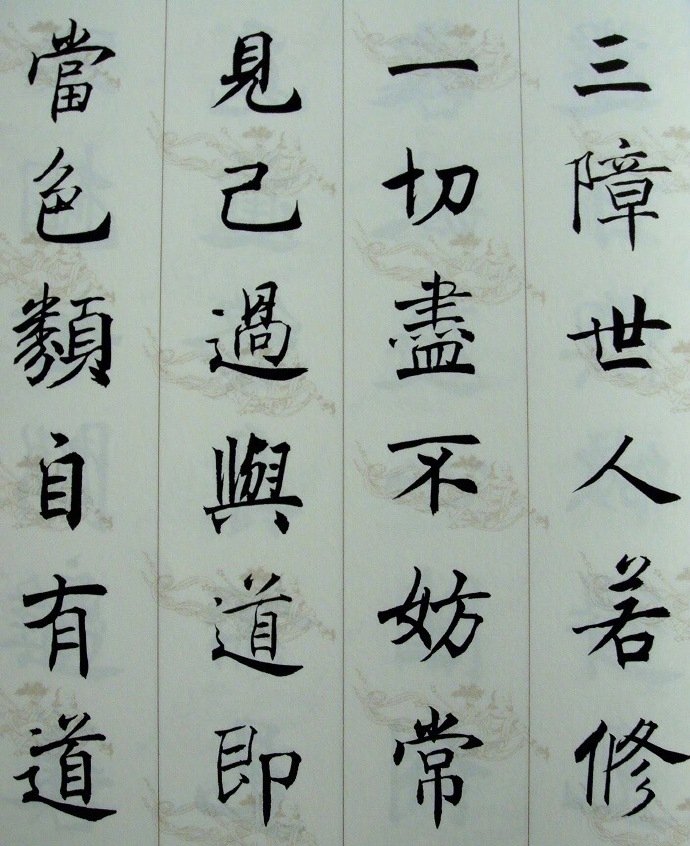 三障世人若修
一切盡不妨常
見己過與道即
當色類自有道